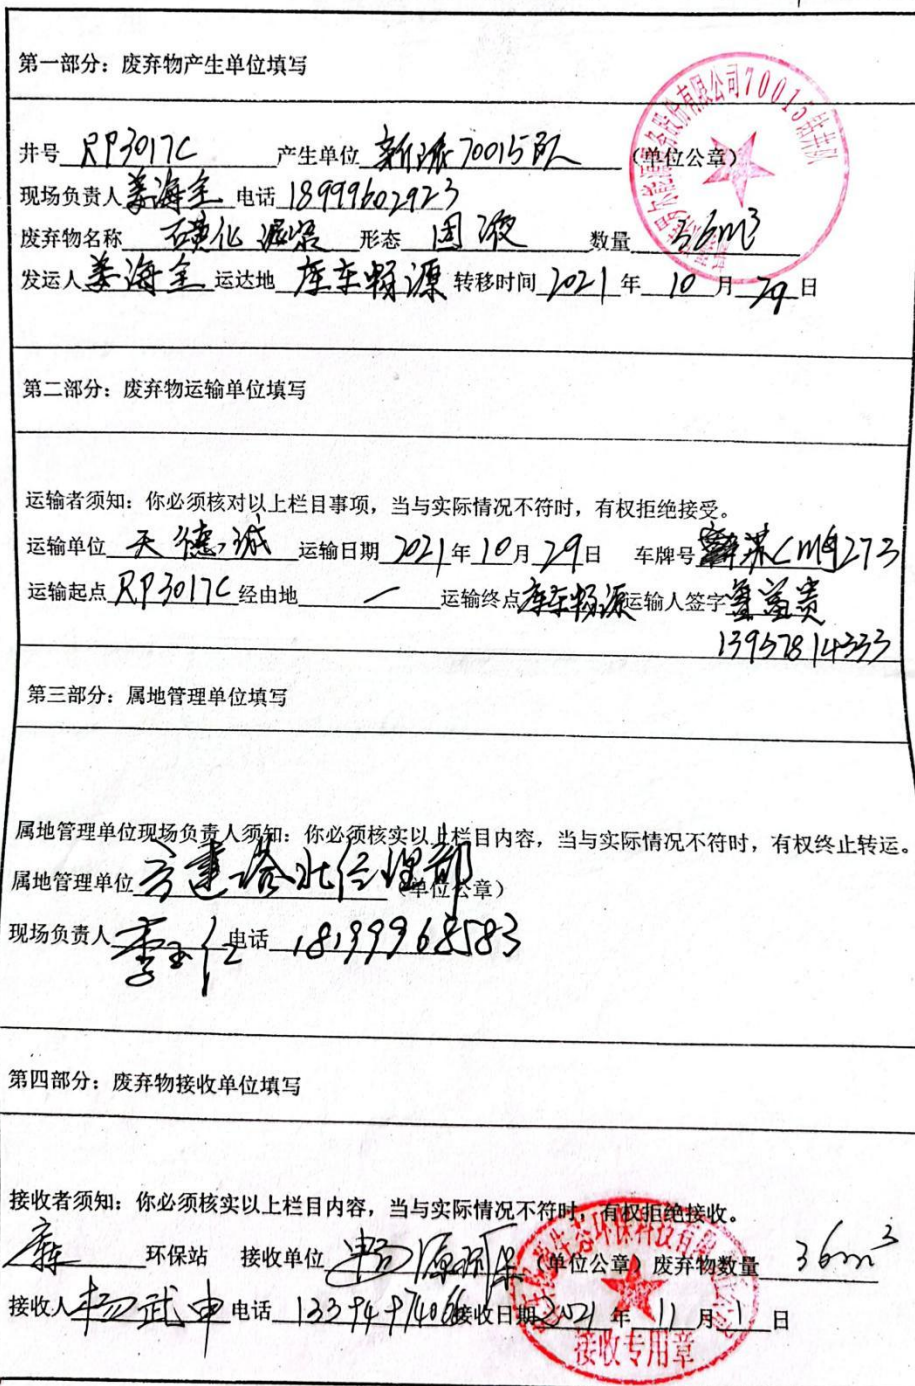 第一部分：废弃物产生单位填写
井号 RP3017C 产生单位 新派70015队 （单位公章）
现场负责人 姜海全 电话 18999602923
废弃物名称 磺化泥浆 形态 固液 数量 36m³
发运人 姜海全 运达地 库车畅源 转移时间 2021 年 10 月 29 日
第二部分：废弃物运输单位填写
运输者须知：你必须核对以上栏目事项，当与实际情况不符时，有权拒绝接受。
运输单位 天德诚 运输日期 2021 年 10 月 29 日 车牌号 苏CMQ273
运输起点 RP3017C 经由地 — 运输终点 库车畅源 运输人签字
13957814333
第三部分：属地管理单位填写
属地管理单位现场负责人须知：你必须核实以上栏目内容，当与实际情况不符时，有权终止转运。
属地管理单位 塔北管理部 （单位公章）
现场负责人 李玉仁 电话 18199968583
第四部分：废弃物接收单位填写
接收者须知：你必须核实以上栏目内容，当与实际情况不符时，有权拒绝接收。
库车 环保站 接收单位 畅源环保 （单位公章） 废弃物数量 36m³
接收人 杨武申 电话 接收日期 2021 年 11 月 1 日
接收专用章